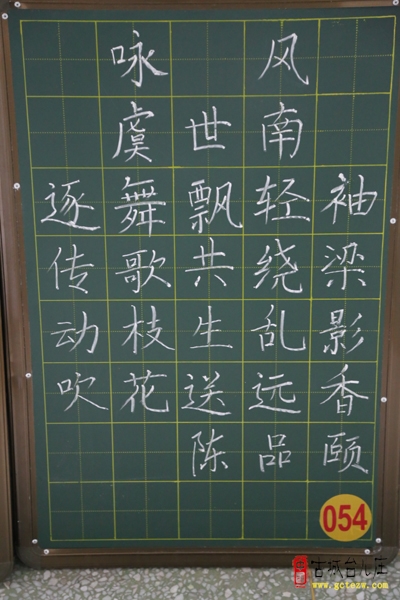 咏风
虞世南
逐舞飘轻袖
传歌共绕梁
动枝生乱影
吹花送远香
陈品颐
054
古城台儿庄
www.gctezw.com